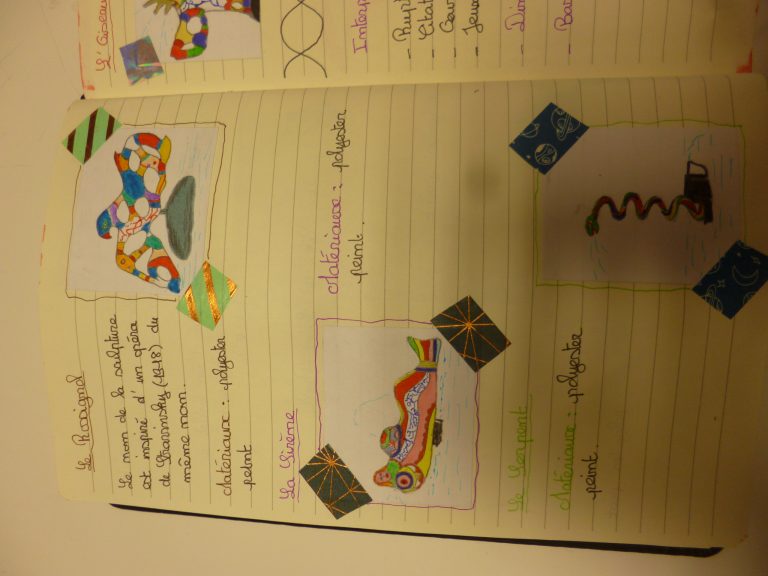 Le Rossignol
Le nom de la sculpture
est inspiré d'un opéra
de Stravinsky (1918) du
même nom.
Matériaux : polyester
peint
La Sirène
Matériaux : polyester
peint.
Le Serpent
Matériaux : polyester
peint.
L'Oiseau
Interp
- Rupt
- Citat
- Jeu